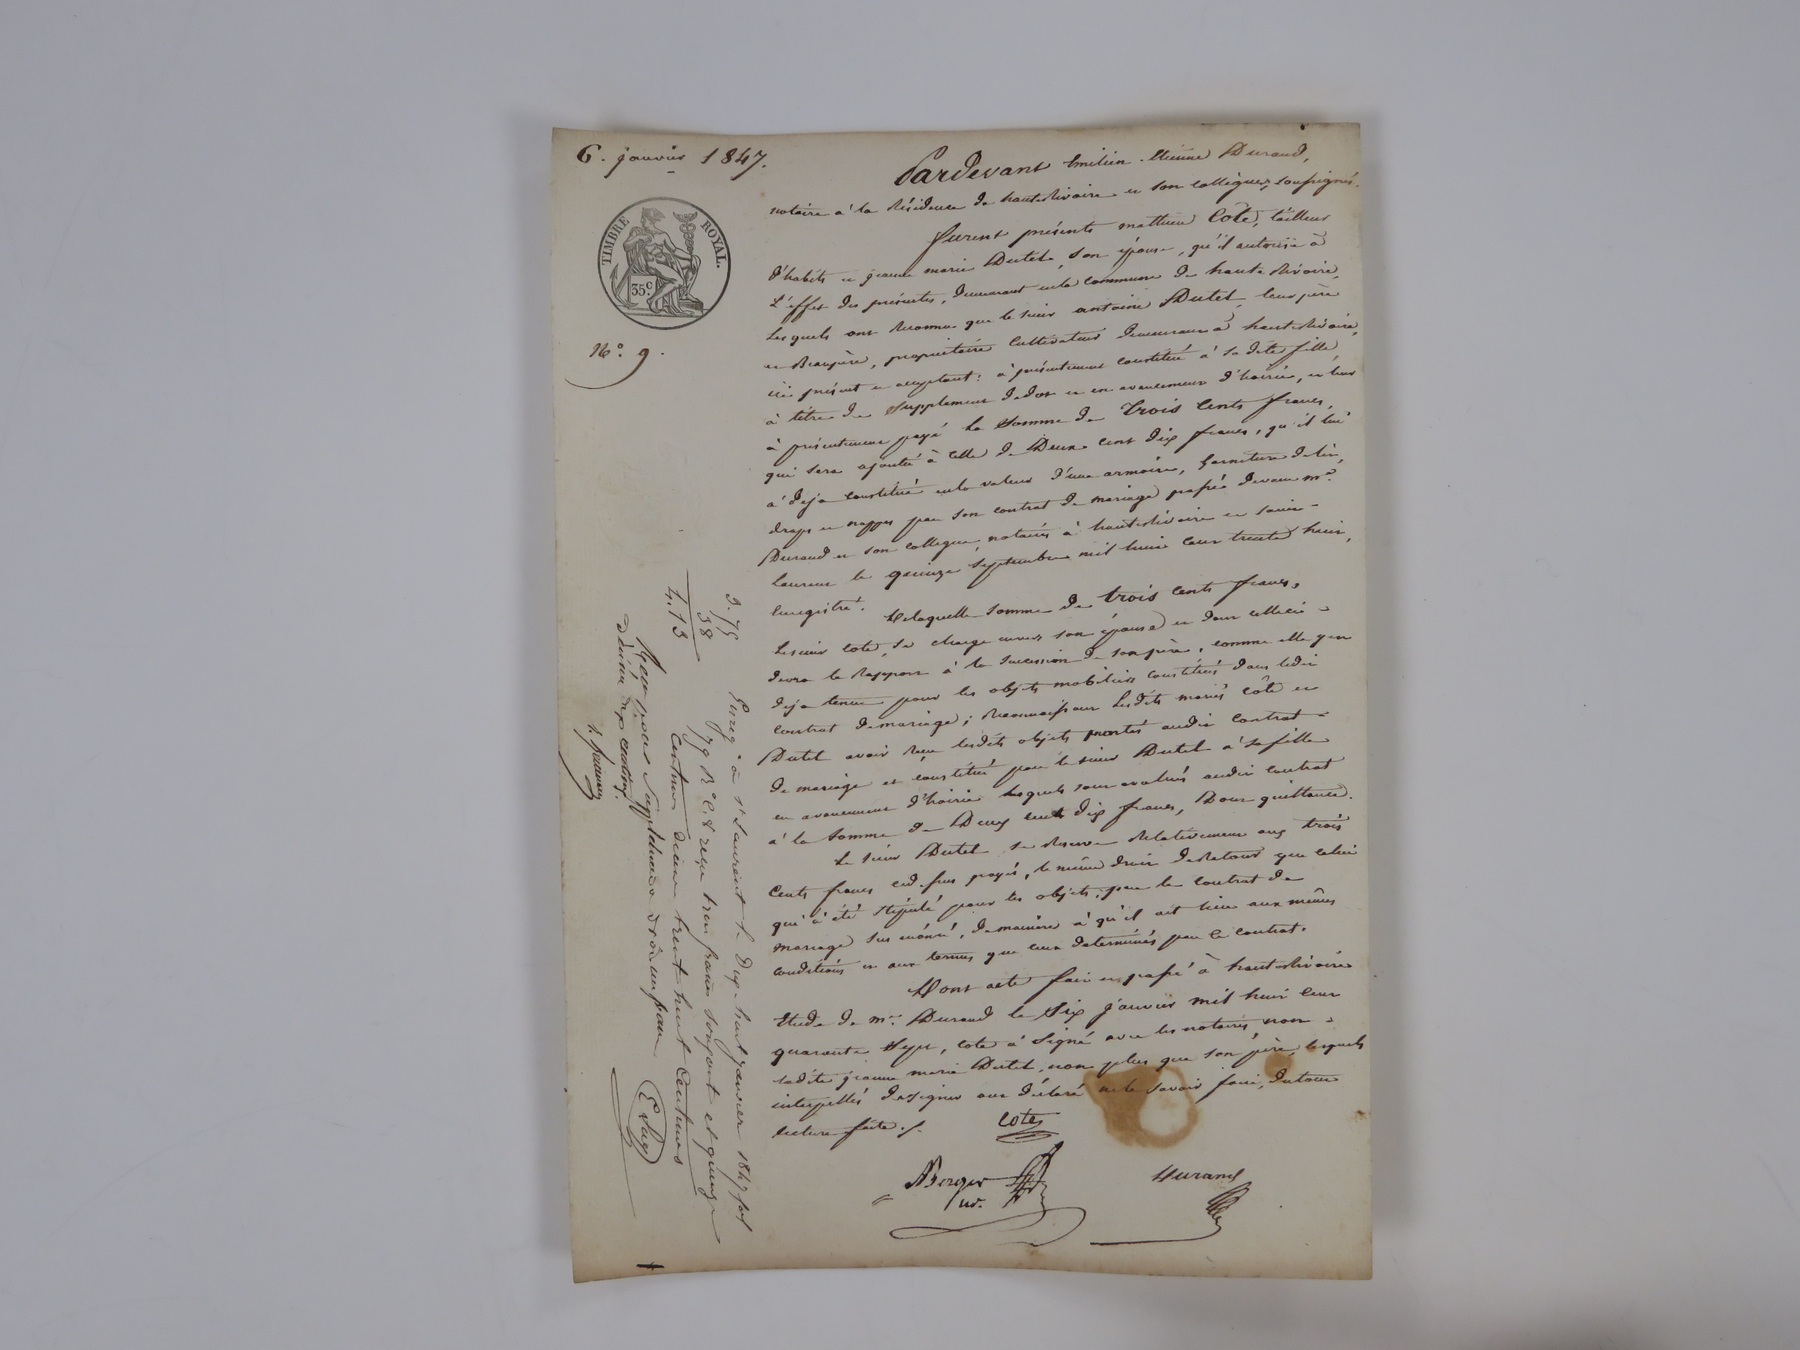 6. janvier 1847.
TIMBRE ROYAL.
35c.
No. 9.
Pardevant Emilien Etienne Durand,
notaire à la Résidence de hauterivoire et son collègue, soussignés.
furent présents mathieu Côte, tailleur
d'habits et jeanne marie Dutel, son épouse, qu'il autorise à
L'effet des présentes, demeurant en la commune de haute Rivoire,
Lesquels ont Reconnu que le sieur antoine Dutel, leur père
et Beaupère, propriétaire Cultivateur demeurant à hauterivoire,
ici présent et acceptant: à présentement constitué à sa dite fille
à titre de Supplement de dot et en avancement d'hoirie, et leur
à présentement payé la Somme de trois Cents francs,
qui sera ajoutée à celle de Deux cent dix francs, qu'il lui
à déja constitué en la valeur d'une armoire, garniture de lit,
draps et nappes par son contrat de mariage passé devant me.
Durand et son collegue, notaires à hauterivoire et saint-
Laurent le quinze septembre mil huit cent trente huit,
Enregistré.
De laquelle somme de trois Cents francs,
Le sieur Cote, se charge envers son épouse et dont celle ci
devra le Rapport à la succession de son père, comme elle y est
déja tenue pour les objets mobiliers constitués dans ledit
contrat de mariage; Reconnaissant Lesdits mariés côte et
Dutel avoir reçu lesdits objets portés audit contrat
de mariage et constitués par le sieur Dutel à sa fille
en avancement d'hoirie lesquels sont évalués audit contrat
à la somme de Deux cent dix francs, Dont quittance.
Le sieur Dutel se Reserve Relativement aux trois
Cents francs ci-dessus payés, le même droit de Retour que celui
qui à été stipulé pour les objets, par le contrat de
mariage sus énoncé, de manière à qu'il ait lieu aux mêmes
conditions et aux termes que ceux determinés par le contrat.
Dont acte fait et passé à hauterivoire
Etude de me. Durand le Six janvier mil huit cent
quarante Sept, Cote à Signé avec les notaires, non
ladite jeanne marie Dutel, non plus que son père, lesquels
interpellés de signer ont déclaré ne le savoir faire, du tout
lecture faite ./.
Cote
Berger
Durand
3.75
38
4.13
Enreg. à St Laurent le Dix huit janvier 1847 fol
79 Ro C. 8 reçu trois francs soixante et quinze
Centimes dixième trente huit Centimes
Reçu pour Supplément de droit un franc
dixième dix centimes.